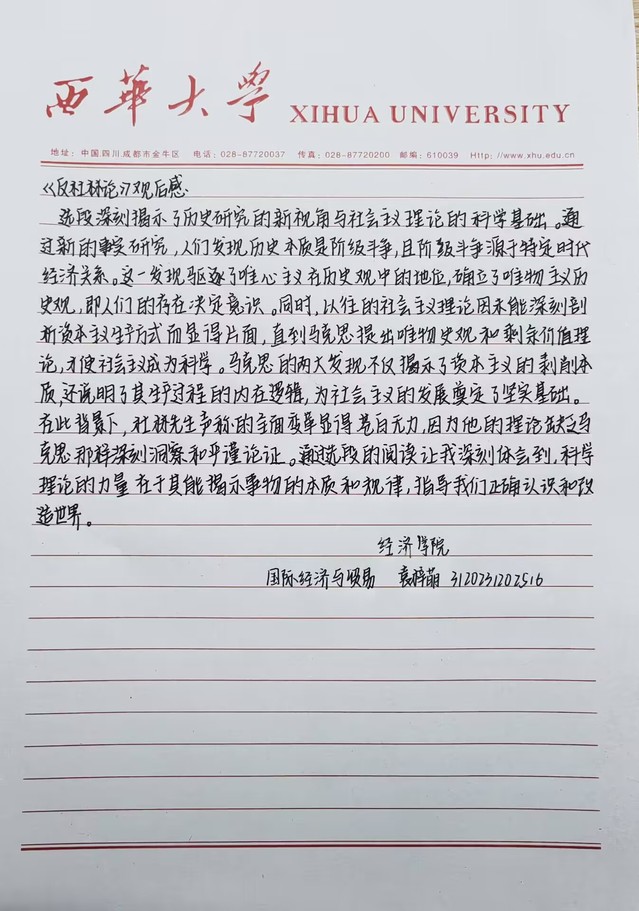 西华大学 XIHUA UNIVERSITY
地址：中国.四川.成都市金牛区 电话：028-87720037 传真：028-87720200 邮编：610039 Http://www.xhu.edu.cn
《反杜林论》观后感.
选段深刻揭示了历史研究的新视角与社会主义理论的科学基础。通
过新的事实研究，人们发现历史本质是阶级斗争，且阶级斗争源于特定时代
经济关系。这一发现驱逐了唯心主义在历史观中的地位，确立了唯物主义历
史观，即人们的存在决定意识。同时，以往的社会主义理论因未能深刻剖
析资本主义生产方式而显得片面，直到马克思提出唯物史观和剩余价值理
论，才使社会主义成为科学。马克思的两大发现不仅揭示了资本主义的剥削本
质，还说明了其生产过程的内在逻辑，为社会主义的发展奠定了坚实基础。
在此背景下，杜林先生声称的全面变革显得苍白无力，因为他的理论缺乏马
克思那样深刻洞察和严谨论证。通过选段的阅读让我深刻体会到，科学
理论的力量在于其能揭示事物的本质和规律，指导我们正确认识和改
造世界。
经济学院
国际经济与贸易 袁梓萌 3120231202516